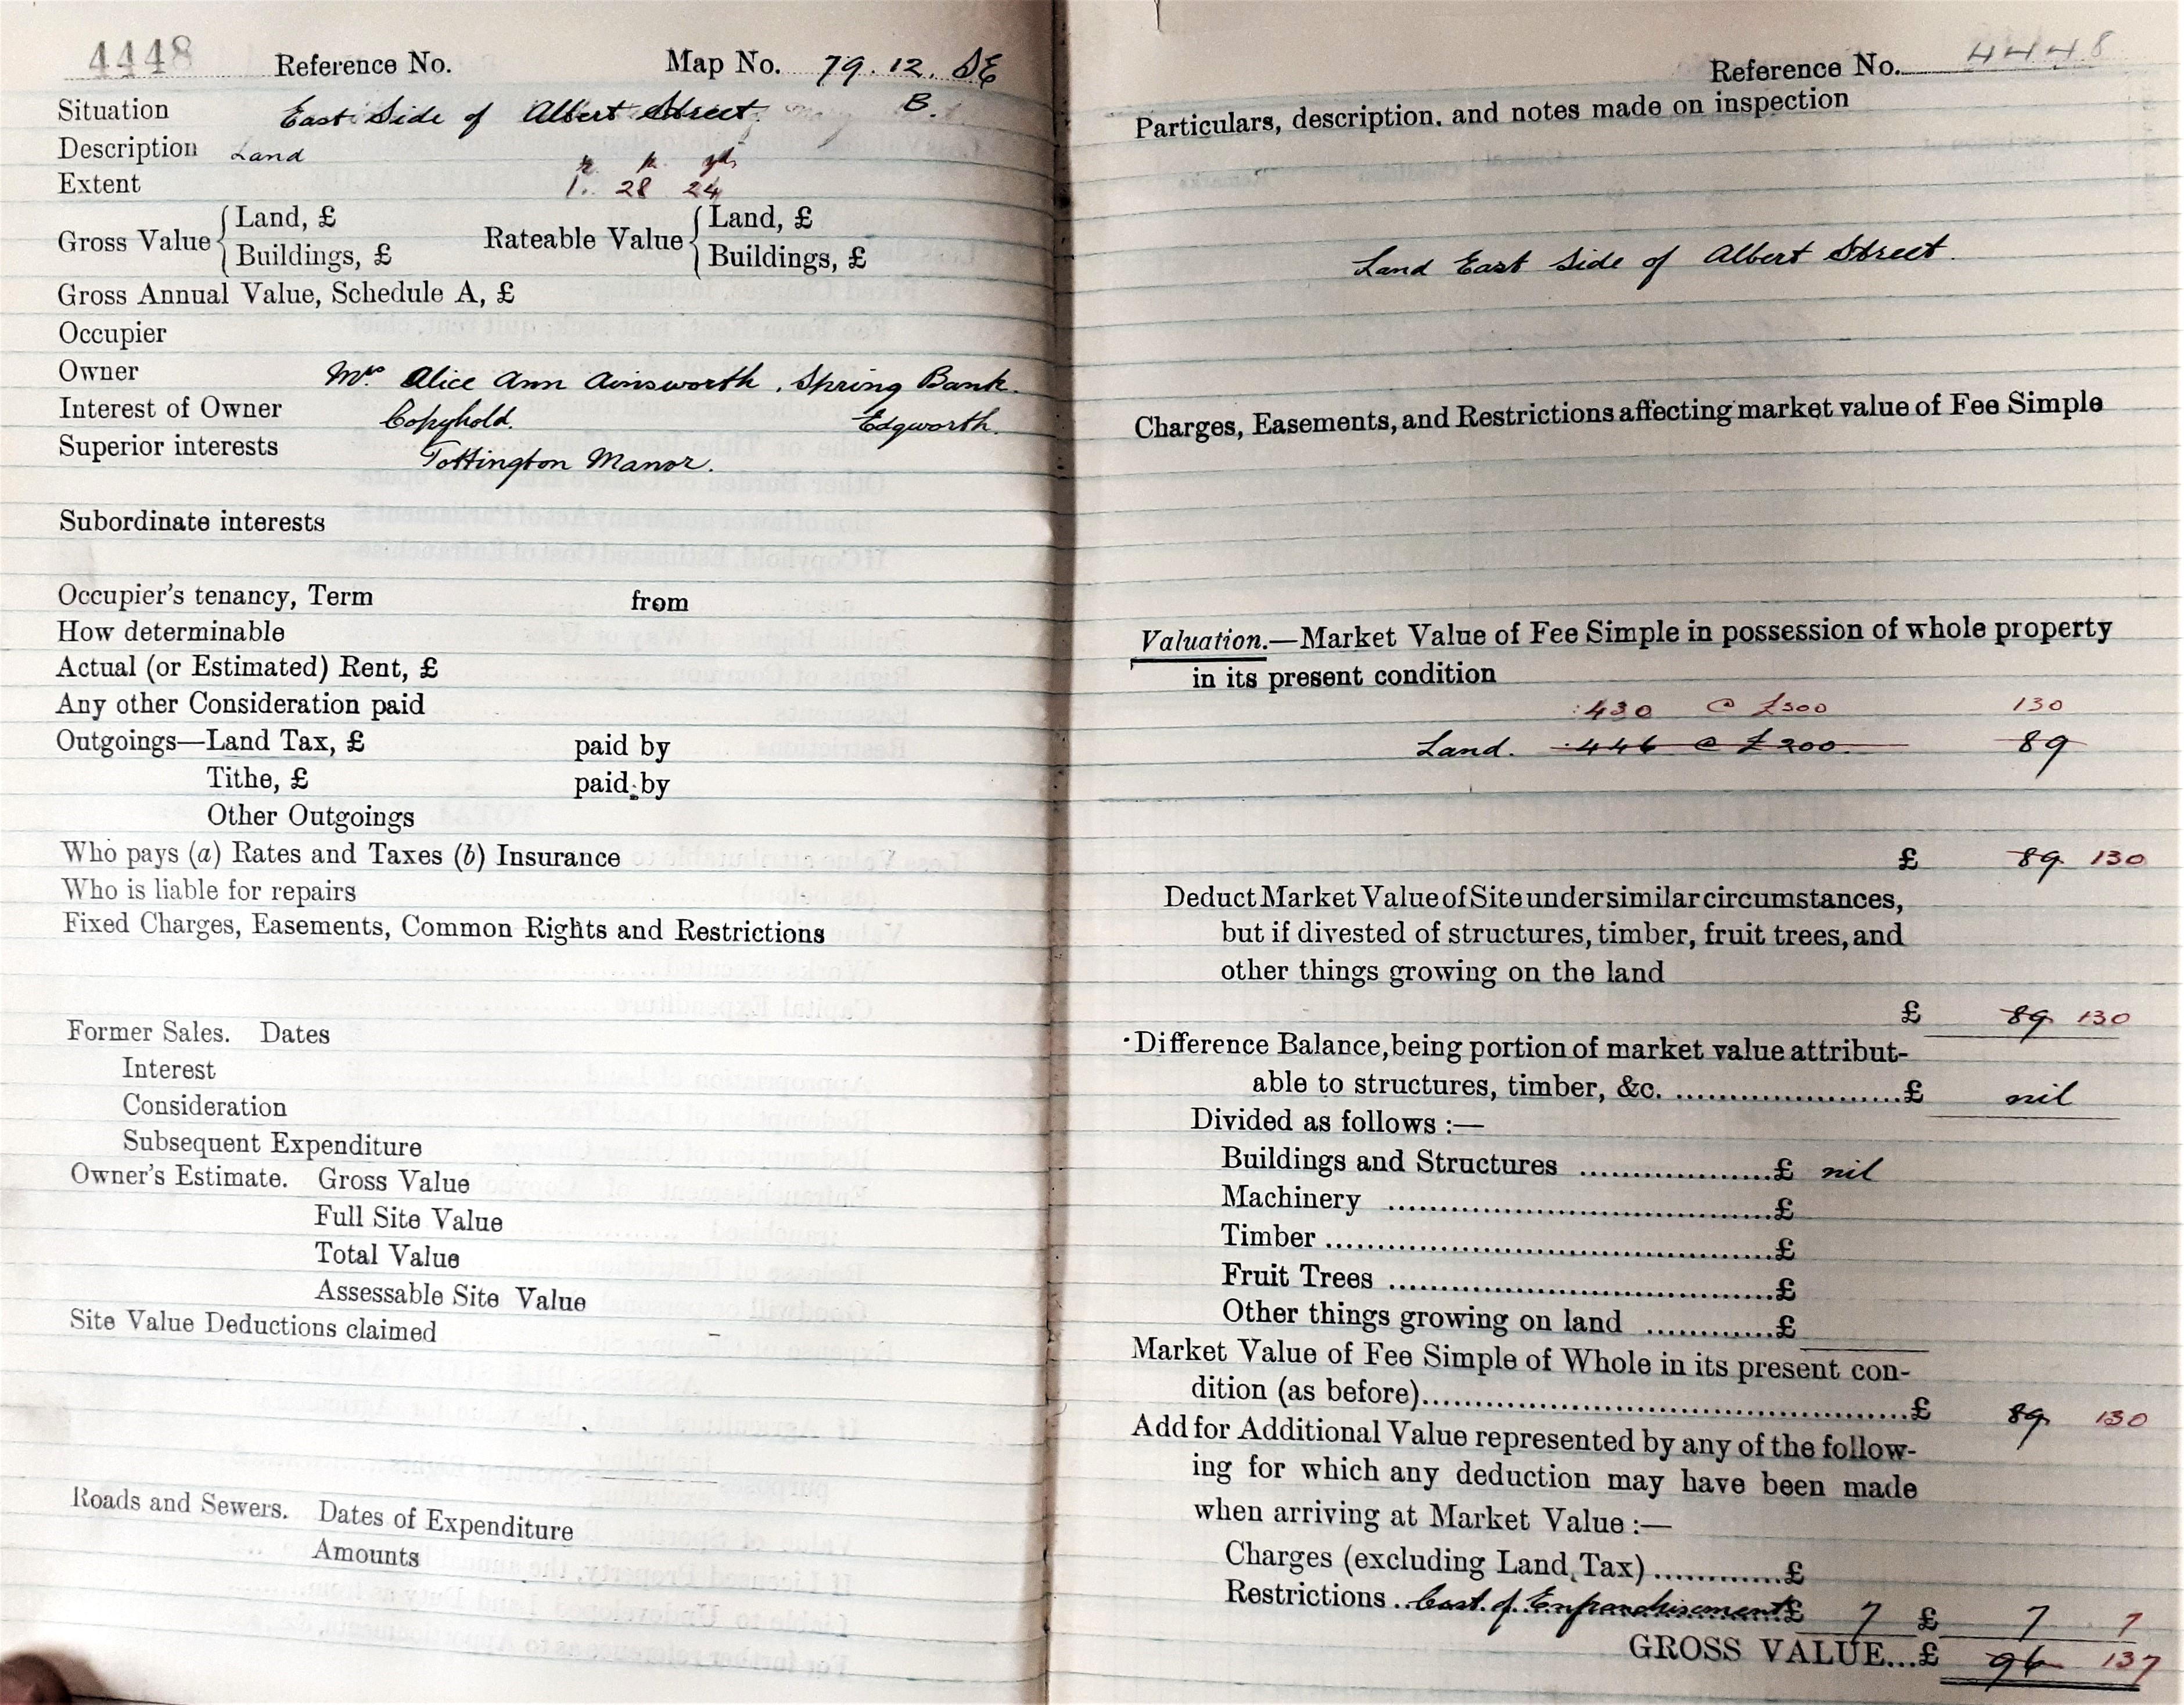 4448 Reference No. Map No. 79.12. SE
Situation East Side of Albert Street. B.
Description Land
r. p. yds
Extent 1. 28 24
Gross Value { Land, £ Rateable Value { Land, £
Buildings, £ Buildings, £
Gross Annual Value, Schedule A, £
Occupier
Owner Mrs. Alice Ann Ainsworth, Spring Bank.
Interest of Owner Copyhold. Edgworth.
Superior interests Tottington Manor.
Subordinate interests
Occupier's tenancy, Term from
How determinable
Actual (or Estimated) Rent, £
Any other Consideration paid
Outgoings—Land Tax, £ paid by
Tithe, £ paid by
Other Outgoings
Who pays (a) Rates and Taxes (b) Insurance
Who is liable for repairs
Fixed Charges, Easements, Common Rights and Restrictions
Former Sales. Dates
Interest
Consideration
Subsequent Expenditure
Owner's Estimate. Gross Value
Full Site Value
Total Value
Assessable Site Value
Site Value Deductions claimed
Roads and Sewers. Dates of Expenditure
Amounts
Reference No. 4448
Particulars, description, and notes made on inspection
Land East Side of Albert Street.
Charges, Easements, and Restrictions affecting market value of Fee Simple
Valuation.—Market Value of Fee Simple in possession of whole property
in its present condition
.430 @ £300 130
Land. .446 @ £200. 89
£ 89 130
Deduct Market Value of Site under similar circumstances,
but if divested of structures, timber, fruit trees, and
other things growing on the land
£ 89 130
Difference Balance, being portion of market value attribut-
able to structures, timber, &c. ........ £ nil
Divided as follows :—
Buildings and Structures ........ £ nil
Machinery ........ £
Timber ........ £
Fruit Trees ........ £
Other things growing on land ........ £
Market Value of Fee Simple of Whole in its present con-
dition (as before)........ £ 89 130
Add for Additional Value represented by any of the follow-
ing for which any deduction may have been made
when arriving at Market Value :—
Charges (excluding Land Tax)........ £
Restrictions .. Cost of Enfranchisement £ 7 £ 7 7
GROSS VALUE...£ 96 137